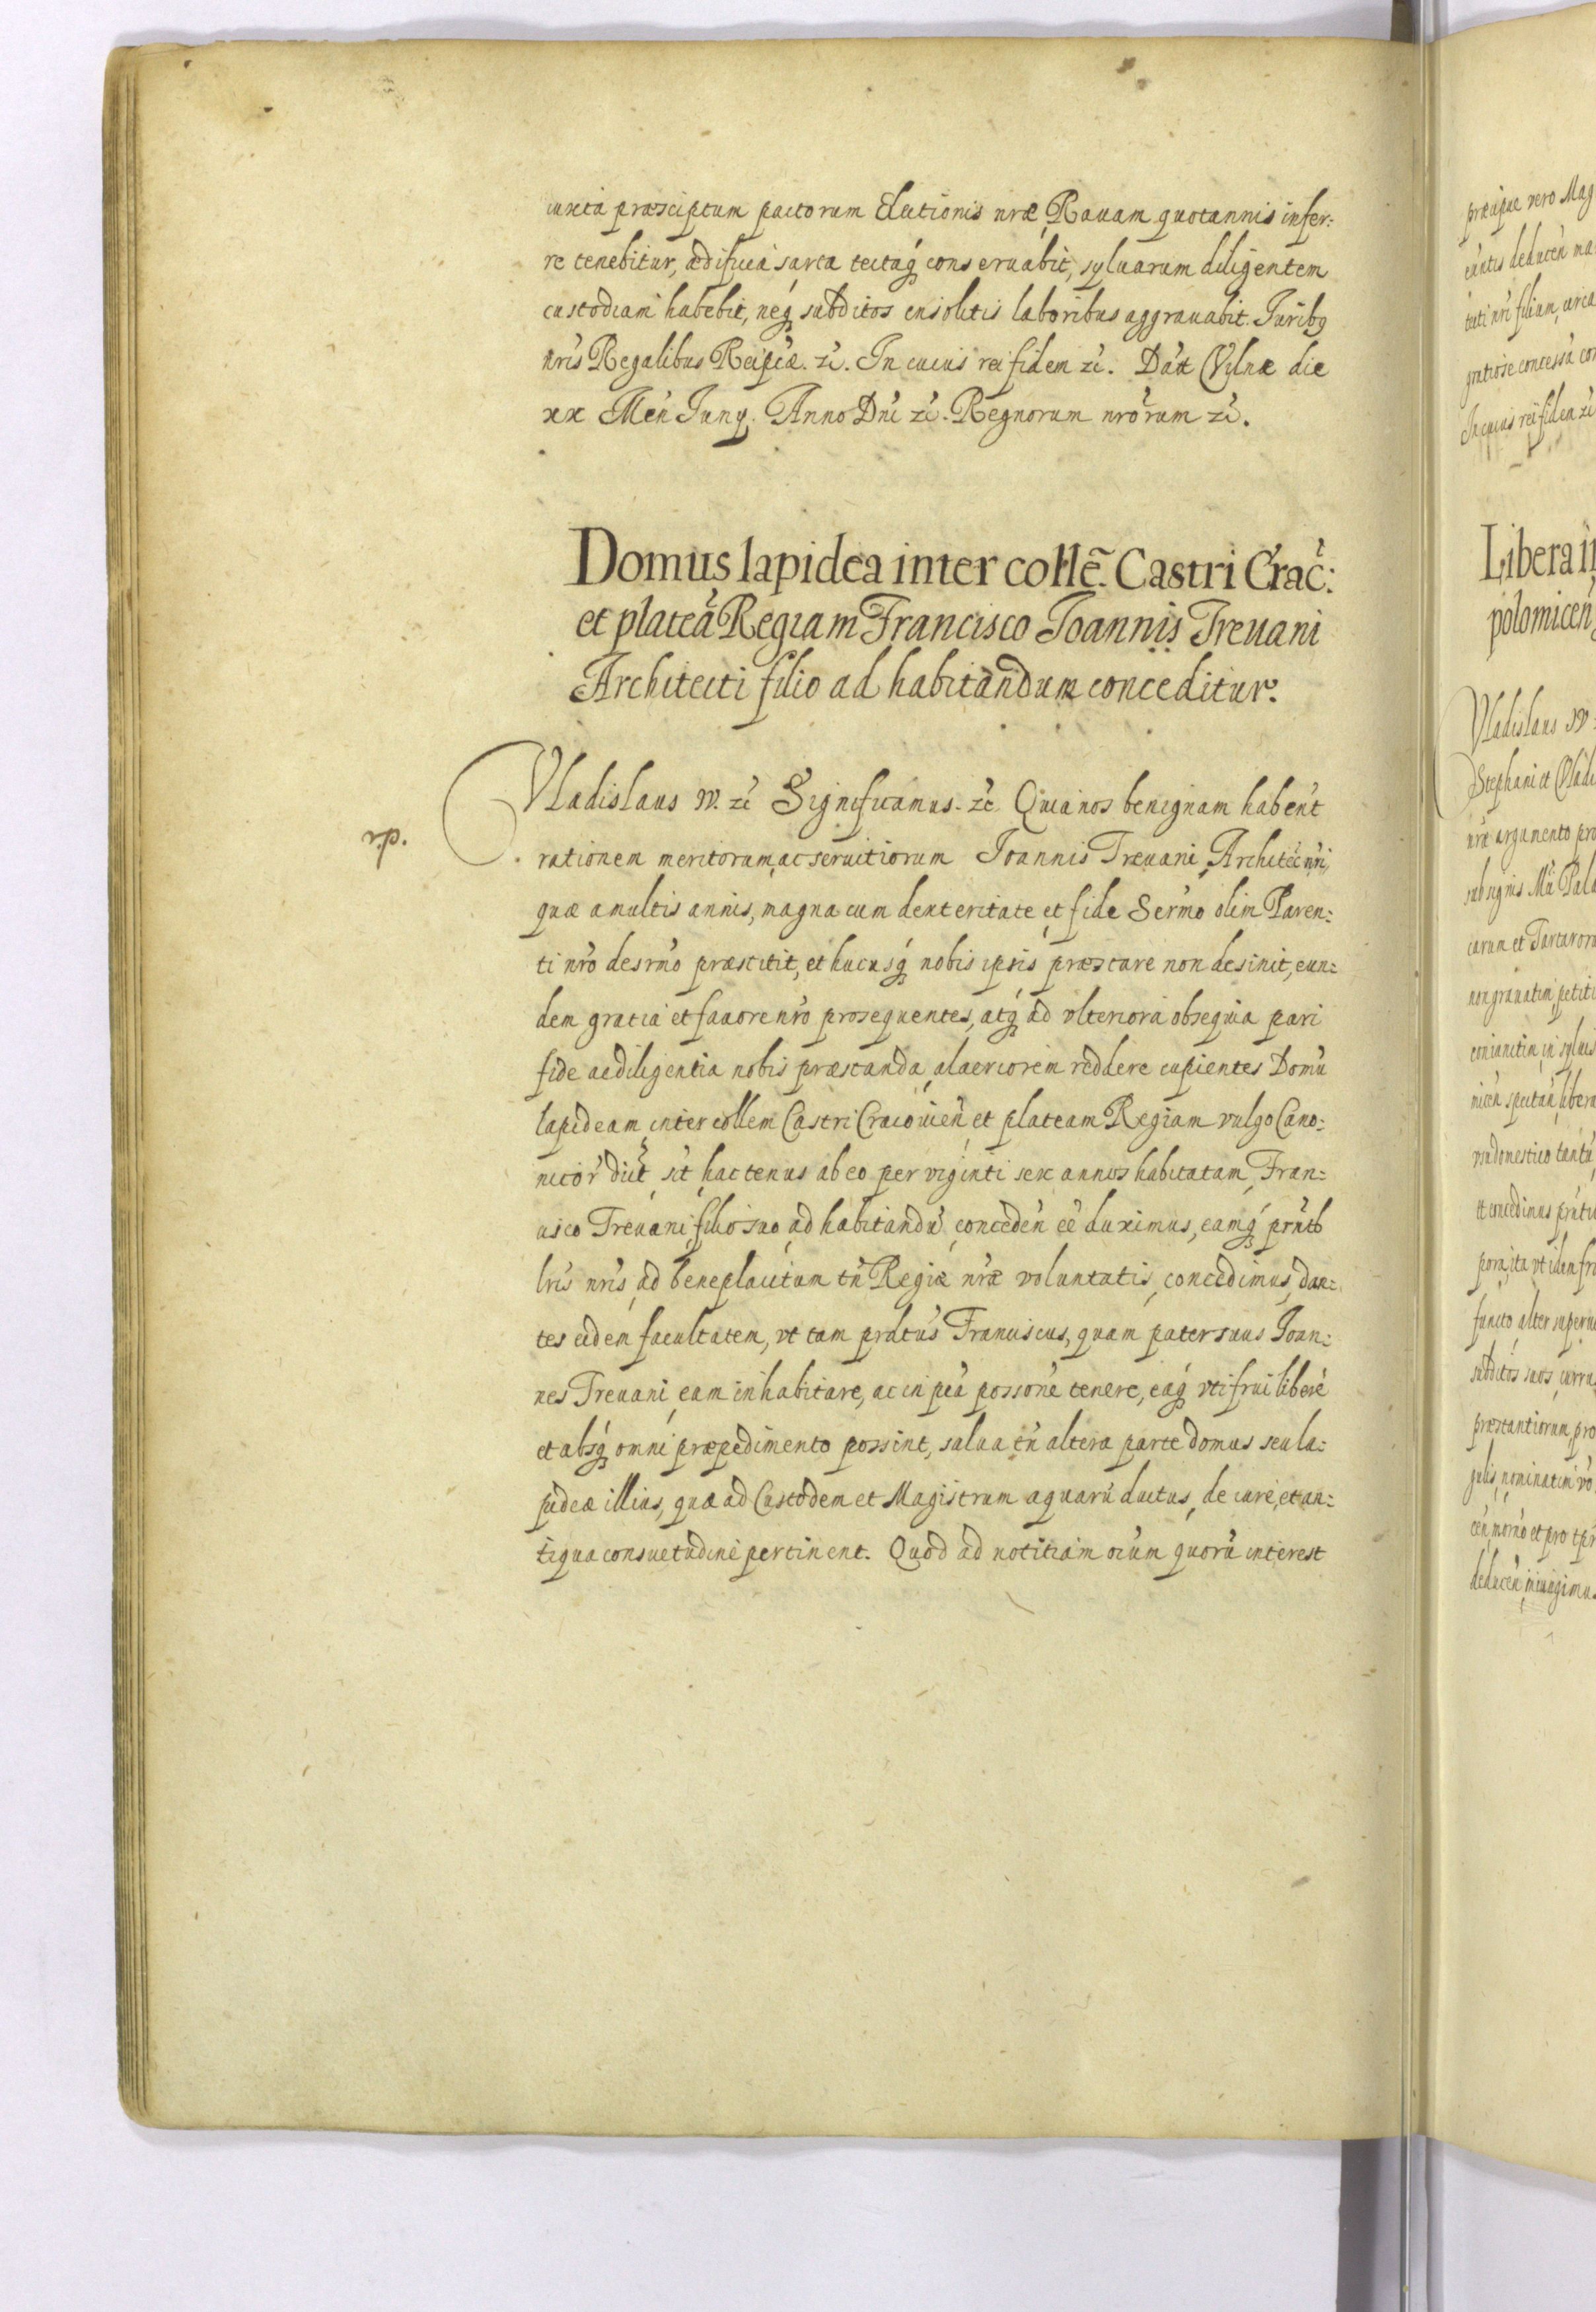 iuxta præsciptum pactorum Electionis nræ, Rauam quotannis infer:
re tenebitur, ædificia sarta tectaq́ conseruabit, syluarum diligentem
custodiam habebit, neq́ subditos insolitis laboribus aggrauabit. Juribq
nris Regalibus Reipcæ. zc. In cuius rei fidem zc. Datt Vylnæ die
xx Men Juny. Anno Dni zc. Regnorum nrorum zc.
Domus lapidea inter collē. Castri Crac:
et plateā Regiam Francisco Joannis Treuani
Architecti filio ad habitandum conceditur.
Vladislaus IV. zc Significamus. zc Quia nos benignam habent
r.p.
rationem meritorum, ac seruitiorum Joannis Treuani, Architec nri,
quæ a multis annis, magna cum dexteritate, et fide Sermo olim Paren:
ti nro desrno præstitit, et hucusq́ nobis ipsis præstare non desinit, eun:
dem gratia et fauore nro prosequentes, atq́ ad vlteriora obsequia pari
fide ac diligentia nobis præstanda, alacriorem reddere cupientes Domū
lapideam, inter collem Castri Cracouien, et plateam Regiam vulgo Cano:
nicor dict, sit, hactenus ab eo per viginti sex annos habitatam, Fran:
cisco Treuani, filio suo, ad habitandū, conceden eē duximus, eamq́ prntb
lris nris, ad beneplacitum tn Regiæ nræ voluntatis, concedimus, dan:
tes eidem facultatem, vt tam prætus Franciscus, quam pater suus Joan:
nes Treuani, eam inhabitare, ac in pca possone tenere, eaq́ vti frui liberè
et absq́ omni præpedimento possint, salua tn altera parte domus seu la:
pideæ illius, quæ ad Custodem et Magistrum aquarū ductus, de iure, et an:
tiqua consuetudine pertinent. Quod ad notitiam oium quorū interest
præcipue vero Mag
gratiose concessa con
In cuius rei fidem zc
Libera
polomicen
Vladislaus IV
Stephani et Vladi
nræ argumento pro
carum et Tartaror
non grauatim petiti
coniunctim, in syluis
et concedimus
functo alter
subditos suos, curru
præstantiorum, pro